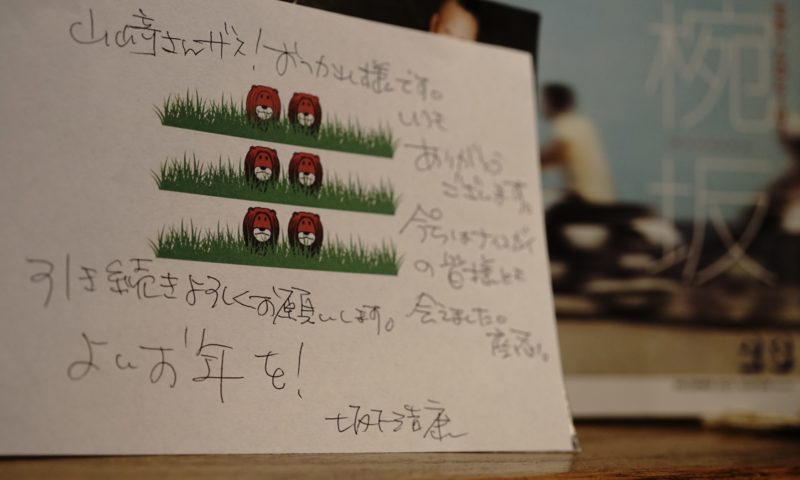 山﨑さんがえ!おつかれ様です。
いつも
ありがとう
ございます。
今
の皆様とも
会えました。
引き続きよろしくお願いします。
よいお年を!
浩康
椀
坂